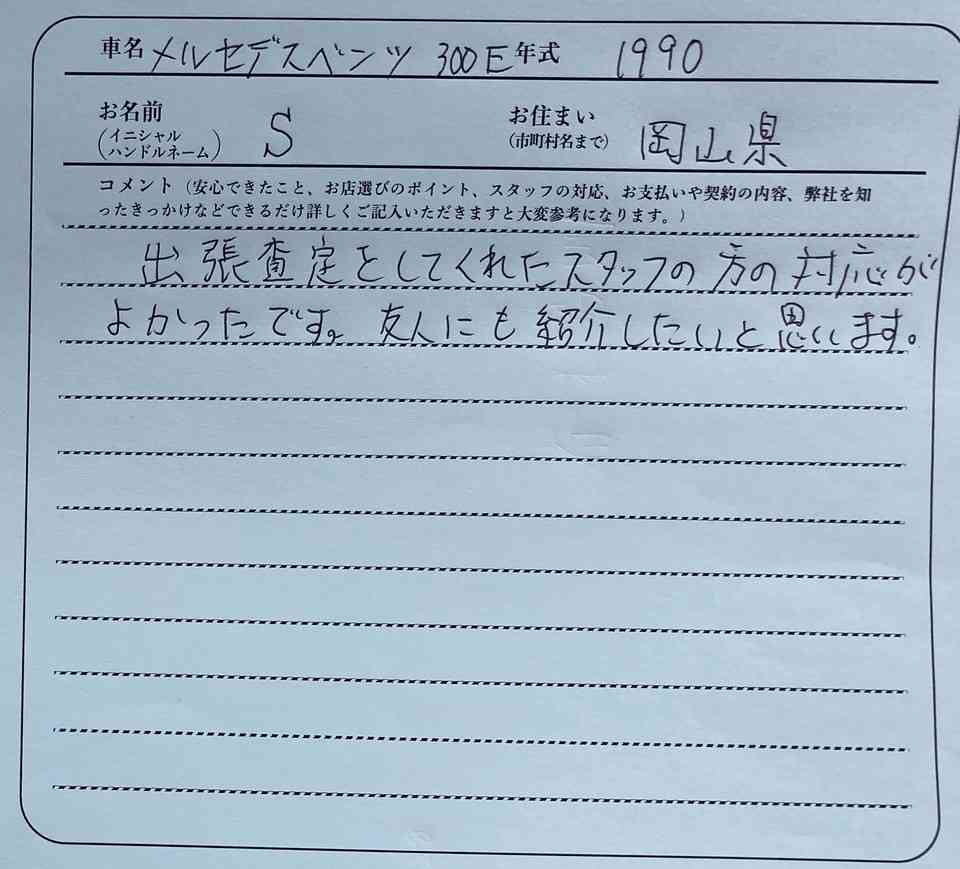 車名 メルセデスベンツ 300E 年式 1990
お名前 (イニシャル ハンドルネーム) S お住まい (市町村名まで) 岡山県
コメント（安心できたこと、お店選びのポイント、スタッフの対応、お支払いや契約の内容、弊社を知
ったきっかけなどできるだけ詳しくご記入いただきますと大変参考になります。）
出張査定をしてくれたスタッフの方の対応が
よかったです。友人にも紹介したいと思います。